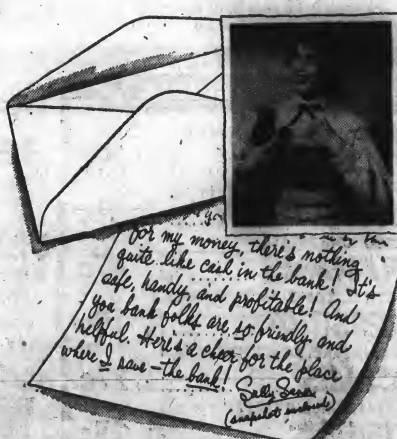 for my money, there's nothing
quite like cash in the bank! It's
safe, handy, and profitable! And
you bank folks are so friendly and
helpful. Here's a cheer for the place
where I save – the bank!
Sally
(snapshot enclosed)